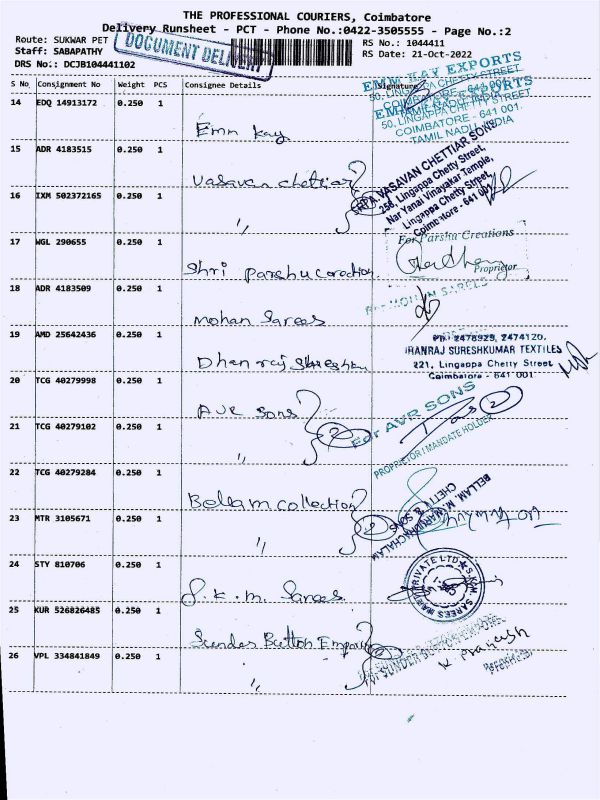 THE PROFESSIONAL COURIERS, Coimbatore
Delivery Runsheet - PCT - Phone No.:0422-3505555 - Page No.:2
Route: SUKWAR PET
RS No.: 1044411
Staff: SABAPATHY
RS Date: 21-Oct-2022
DRS No.: DCJB104441102
DOCUMENT DELIVERY
S No Consignment No Weight PCS Consignee Details Signature
14 EDQ 14913172 0.250 1
Emm kay
EMM KAY EXPORTS
50, LINGAPPA CHETTY STREET,
COIMBATORE - 641 001.
TAMIL NADU, INDIA
15 ADR 4183515 0.250 1
Vasavan chettiar
VASAVAN CHETTIAR SONS
256, Lingappa Chetty Street,
Nar Yanai Vinayakar Temple,
Lingappa Chetty Street,
Coimbatore - 641 001
16 IXM 502372165 0.250 1
"
17 WGL 290655 0.250 1
Shri Parshu Coreation
For Parshu Creations
Proprietor
18 ADR 4183509 0.250 1
Mohan Sarees
MOHAN SAREES
19 AMD 25642436 0.250 1
Dhanraj Sureshku
PH: 2476929, 2474120.
DHANRAJ SURESHKUMAR TEXTILES
221, Lingappa Chetty Street
Coimbatore - 641 001
20 TCG 40279998 0.250 1
AVR Sons
For AVR SONS
PROPRIETOR / MANDATE HOLDER
21 TCG 40279102 0.250 1
"
22 TCG 40279284 0.250 1
Bellam collection
BELLAM. M. MARUDHACHALAM
CHETTY & SONS
23 MTR 3105671 0.250 1
"
24 STY 810706 0.250 1
S.K.M. Sarees
S.K.M. SAREES PRIVATE LTD
25 KUR 526826485 0.250 1
Sunder Button Empori
FOR SUNDER BUTTON
K Prakash
26 VPL 334841849 0.250 1
"